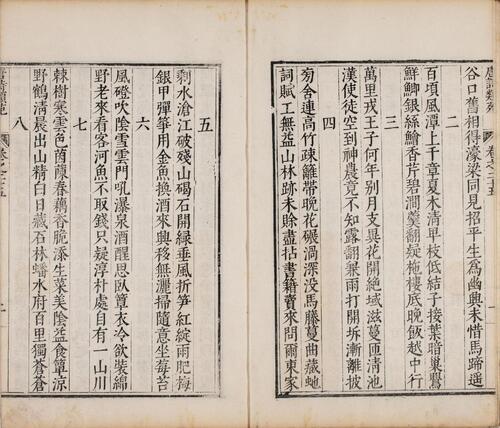 唐詩類苑
谷口舊相得濠梁同見招平生爲幽興未惜馬蹄遥
二
百頃風潭上千章夏木清卑枝低結子接葉暗巢鶯
鮮鯽銀絲鱠香芹碧澗羹翻疑柂樓底晚飯越中行
三
萬里戎王子何年别月支異花開絶域滋蔓匝清池
漢使徒空到神農竟不知露翻兼雨打開坼漸離披
四
旁舍連高竹疎籬帶晚花碾渦深没馬藤蔓曲藏虵
詞賦工無益山林跡未賒盡拈書籍賣來問爾東家
五
剩水滄江破殘山碣石開緑垂風折笋紅綻雨肥梅
銀甲彈箏用金魚換酒來興移無灑掃隨意坐莓苔
六
風磴吹陰雪雲門吼瀑泉酒醒思臥簟衣冷欲裝綿
野老來看客河魚不取錢只疑淳朴處自有一山川
七
棘樹寒雲色茵蔯春藕香脆添生菜美陰益食簞涼
野鶴清晨出山精白日藏石林蟠水府百里獨蒼蒼
八
唐詩類苑